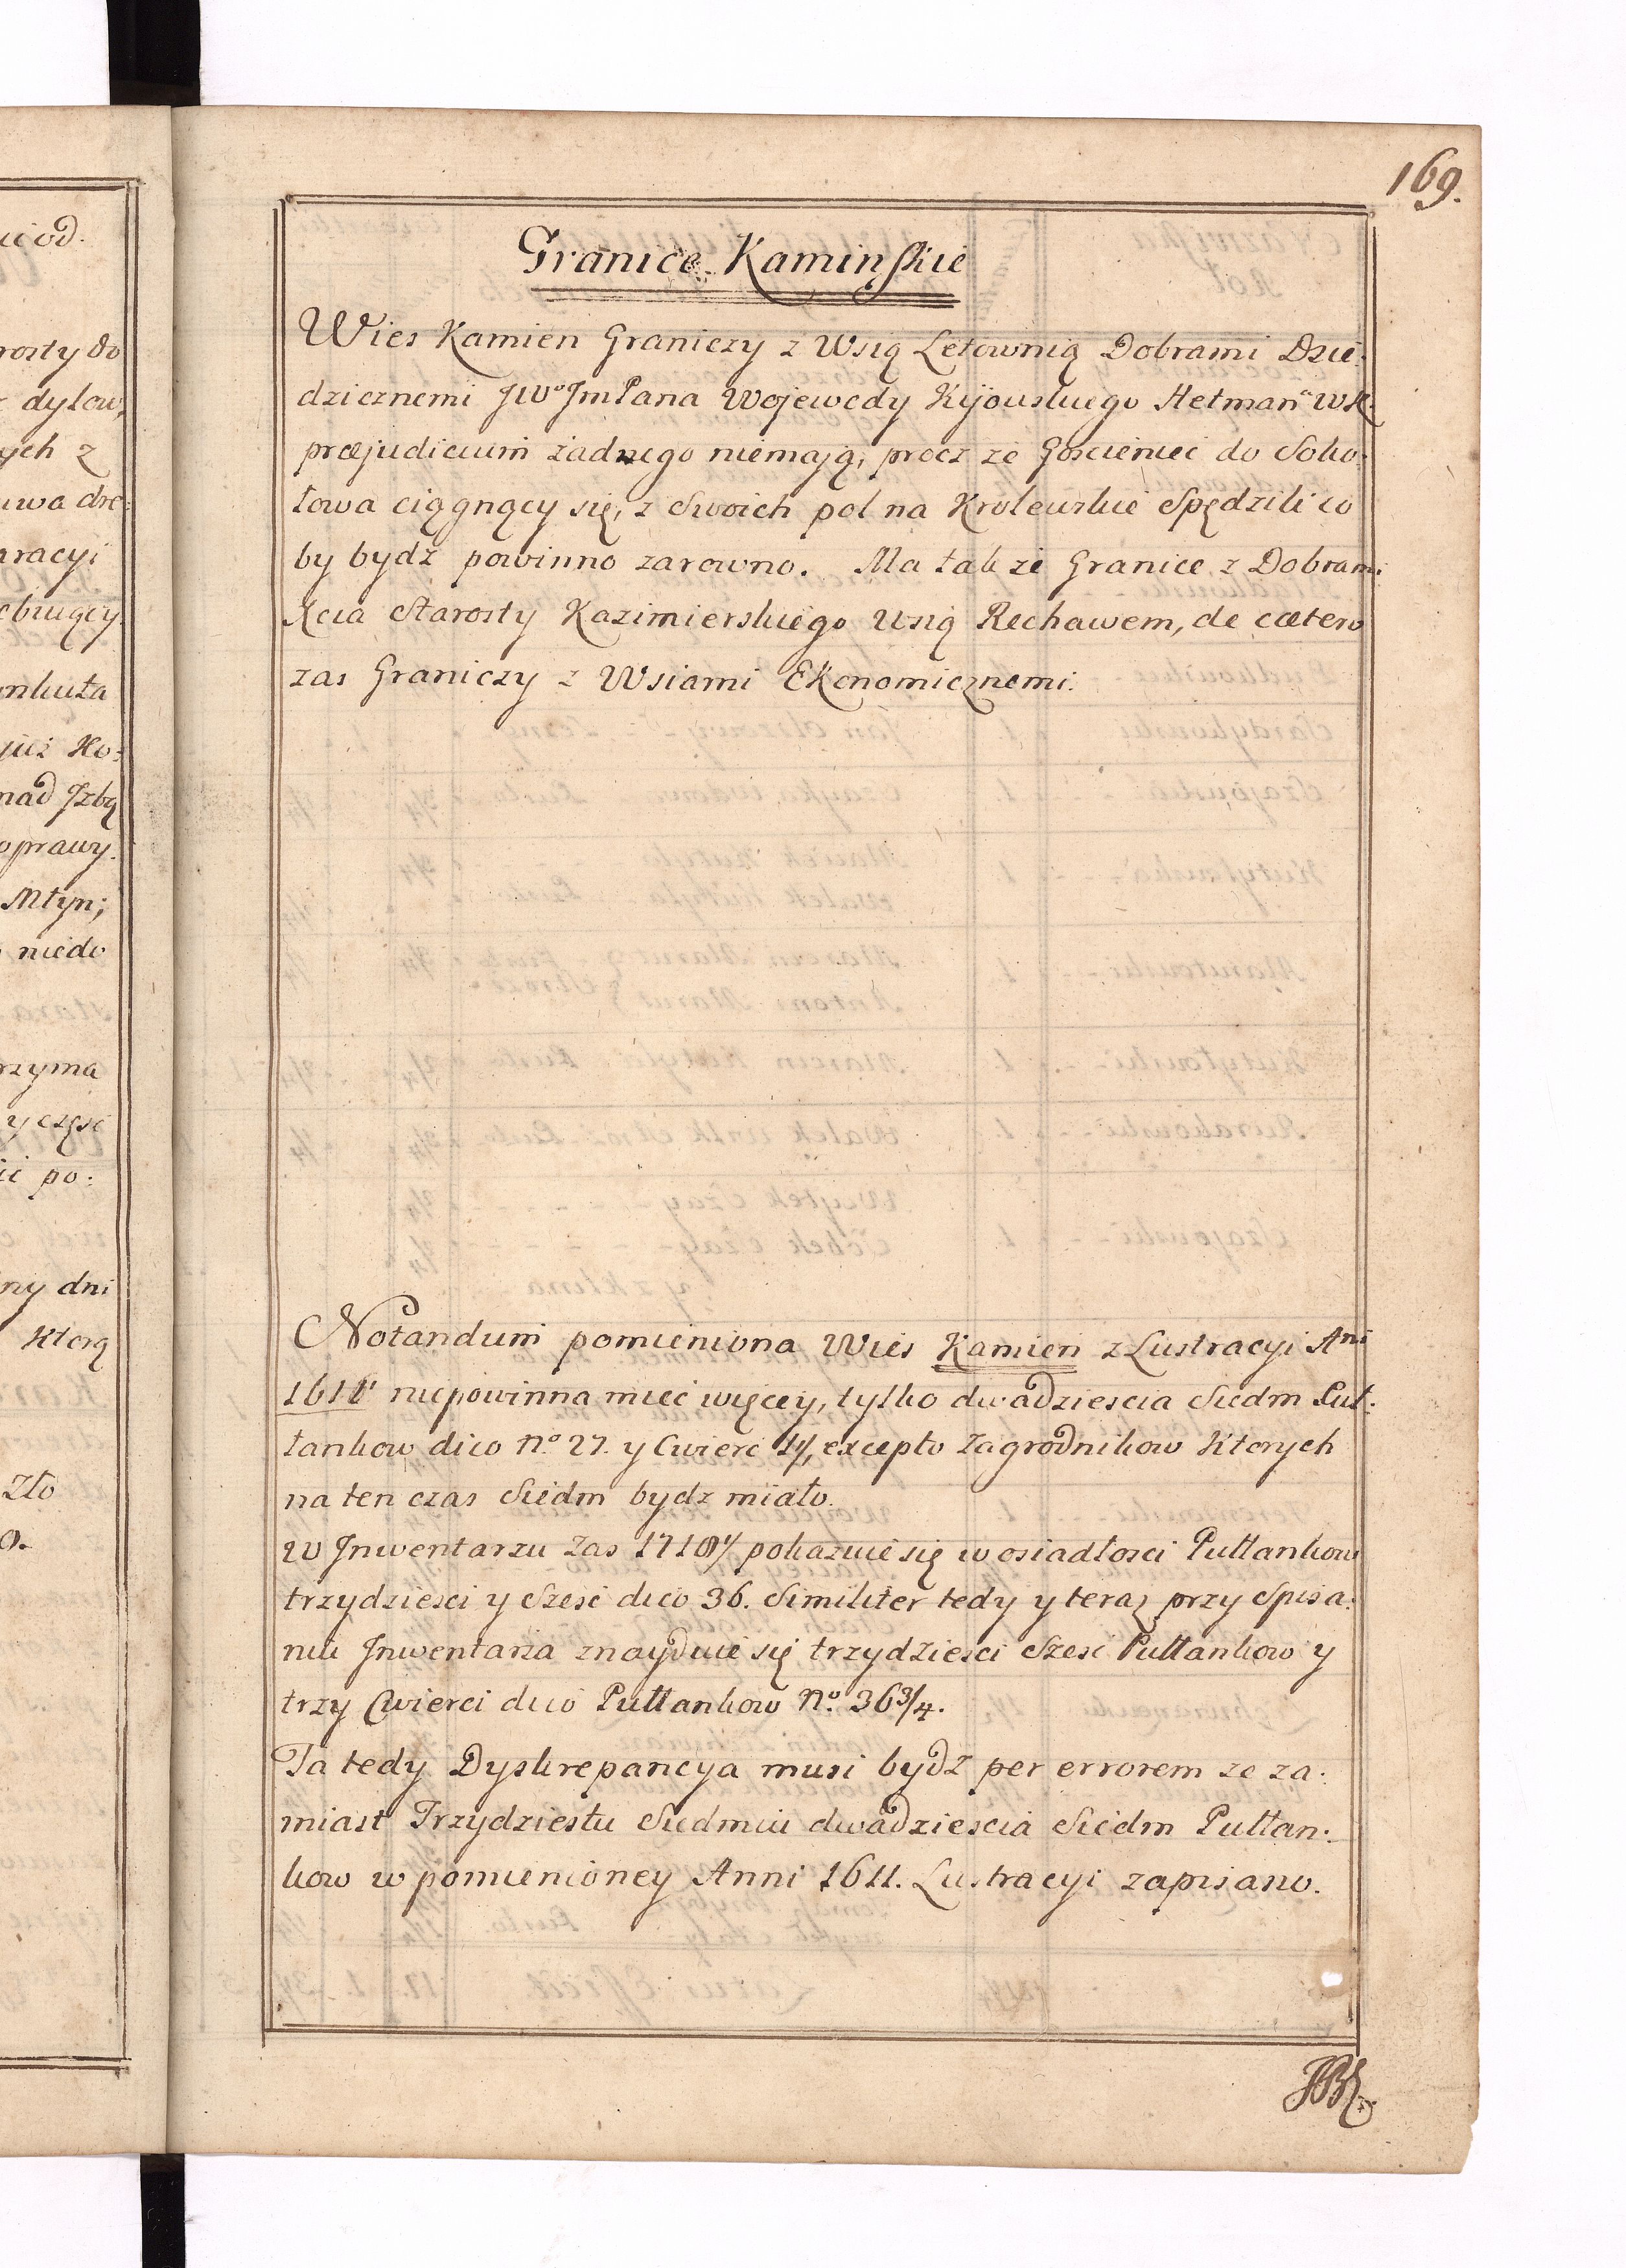 169.
Granice Kaminskie
Wies Kamien Graniczy z Wsią Letownią Dobrami Dzie:
dzicznemi JWo JmPana Wojewody Kijouskiego Hetmana WK.
præjudicium żadnego niemają, procz że Goscieniec do Soko:
łowa ciągnący się, z Swoich pol na Krolewskie Spędzili co
by bydz powinno zarowno. Ma takze Granice z Dobrami
Xcia Starosty Kazimierskiego Wsią Rechawem, de cætero
zas Graniczy z Wsiami Ekonomicznemi.
Notandum pomieniona Wies Kamien z Lustracyi Ani
1611 niepowinna miec więcey, tylko dwadziescia Siedm Put:
tankow dico No 27. y Cwierc 1/4, excepto Zagrodnikow Ktorych
na ten czas Siedm bydz miało.
w Jnwentarzu Zas pokazuie się w osiadłosci Puttankow
trzydziesci y Szesc dico 36. Similiter tedy y teraz przy Spisa:
niu Jnwentarza znayduie się trzydziesci Szesc Puttankow y
trzy Cwierci dico Puttankow No. 36 3/4.
Ta tedy Dyskrepancya musi bydz per errorem ze za:
miast Trzydziestu Siedmiu dwadziescia Siedm Puttan:
kow w pomienioney Anni 1611. Lustracyi zapisano.